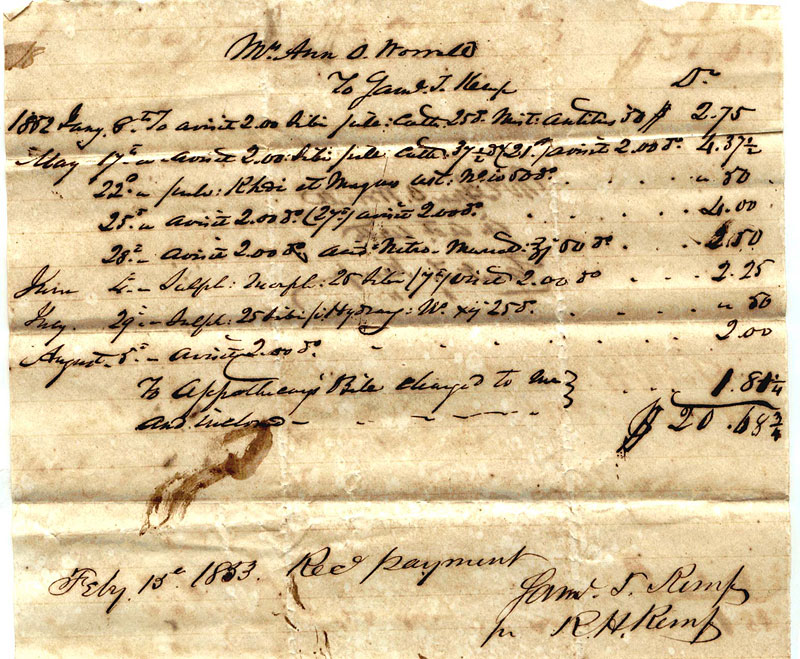 Mrs Ann D. Worrell
To Saml. T. Kemp
Dr
1852 Jany. 8th To a visit 2.00 pulv: Cath: 25c. Mist: 50 $ 2.75
May 17th " a visit 2.00 pulv: Cath: 37½ (21st) a visit 2.00 do. 4.37½
22d " pulv: Rhei et Magnes ust: No 10 50do. . . . . " 50
25th " a visit 2.00 do (27th) a visit 2.00 do. . . . . 4.00
28th " a visit 2.00 do, acid Nitro-Muriat: ʒj 50 do . . . 2.50
June 4 " Sulph: Morph: 25 (7th) visit 2.00 do . . . 2.25
July. 29th " Sulph: 25 Hydrarg: No. xij 25c. . . . . " 50
August 5th " a visit 2.00 do. . . . . . . . 2.00
To Appothecary's Bill charged to me } . . . 1.81¼
and enclosed - - - - -
$ 20.68¾
Feby. 15th 1853. Recd payment
Saml. T. Kemp
pr R.H. Kemp